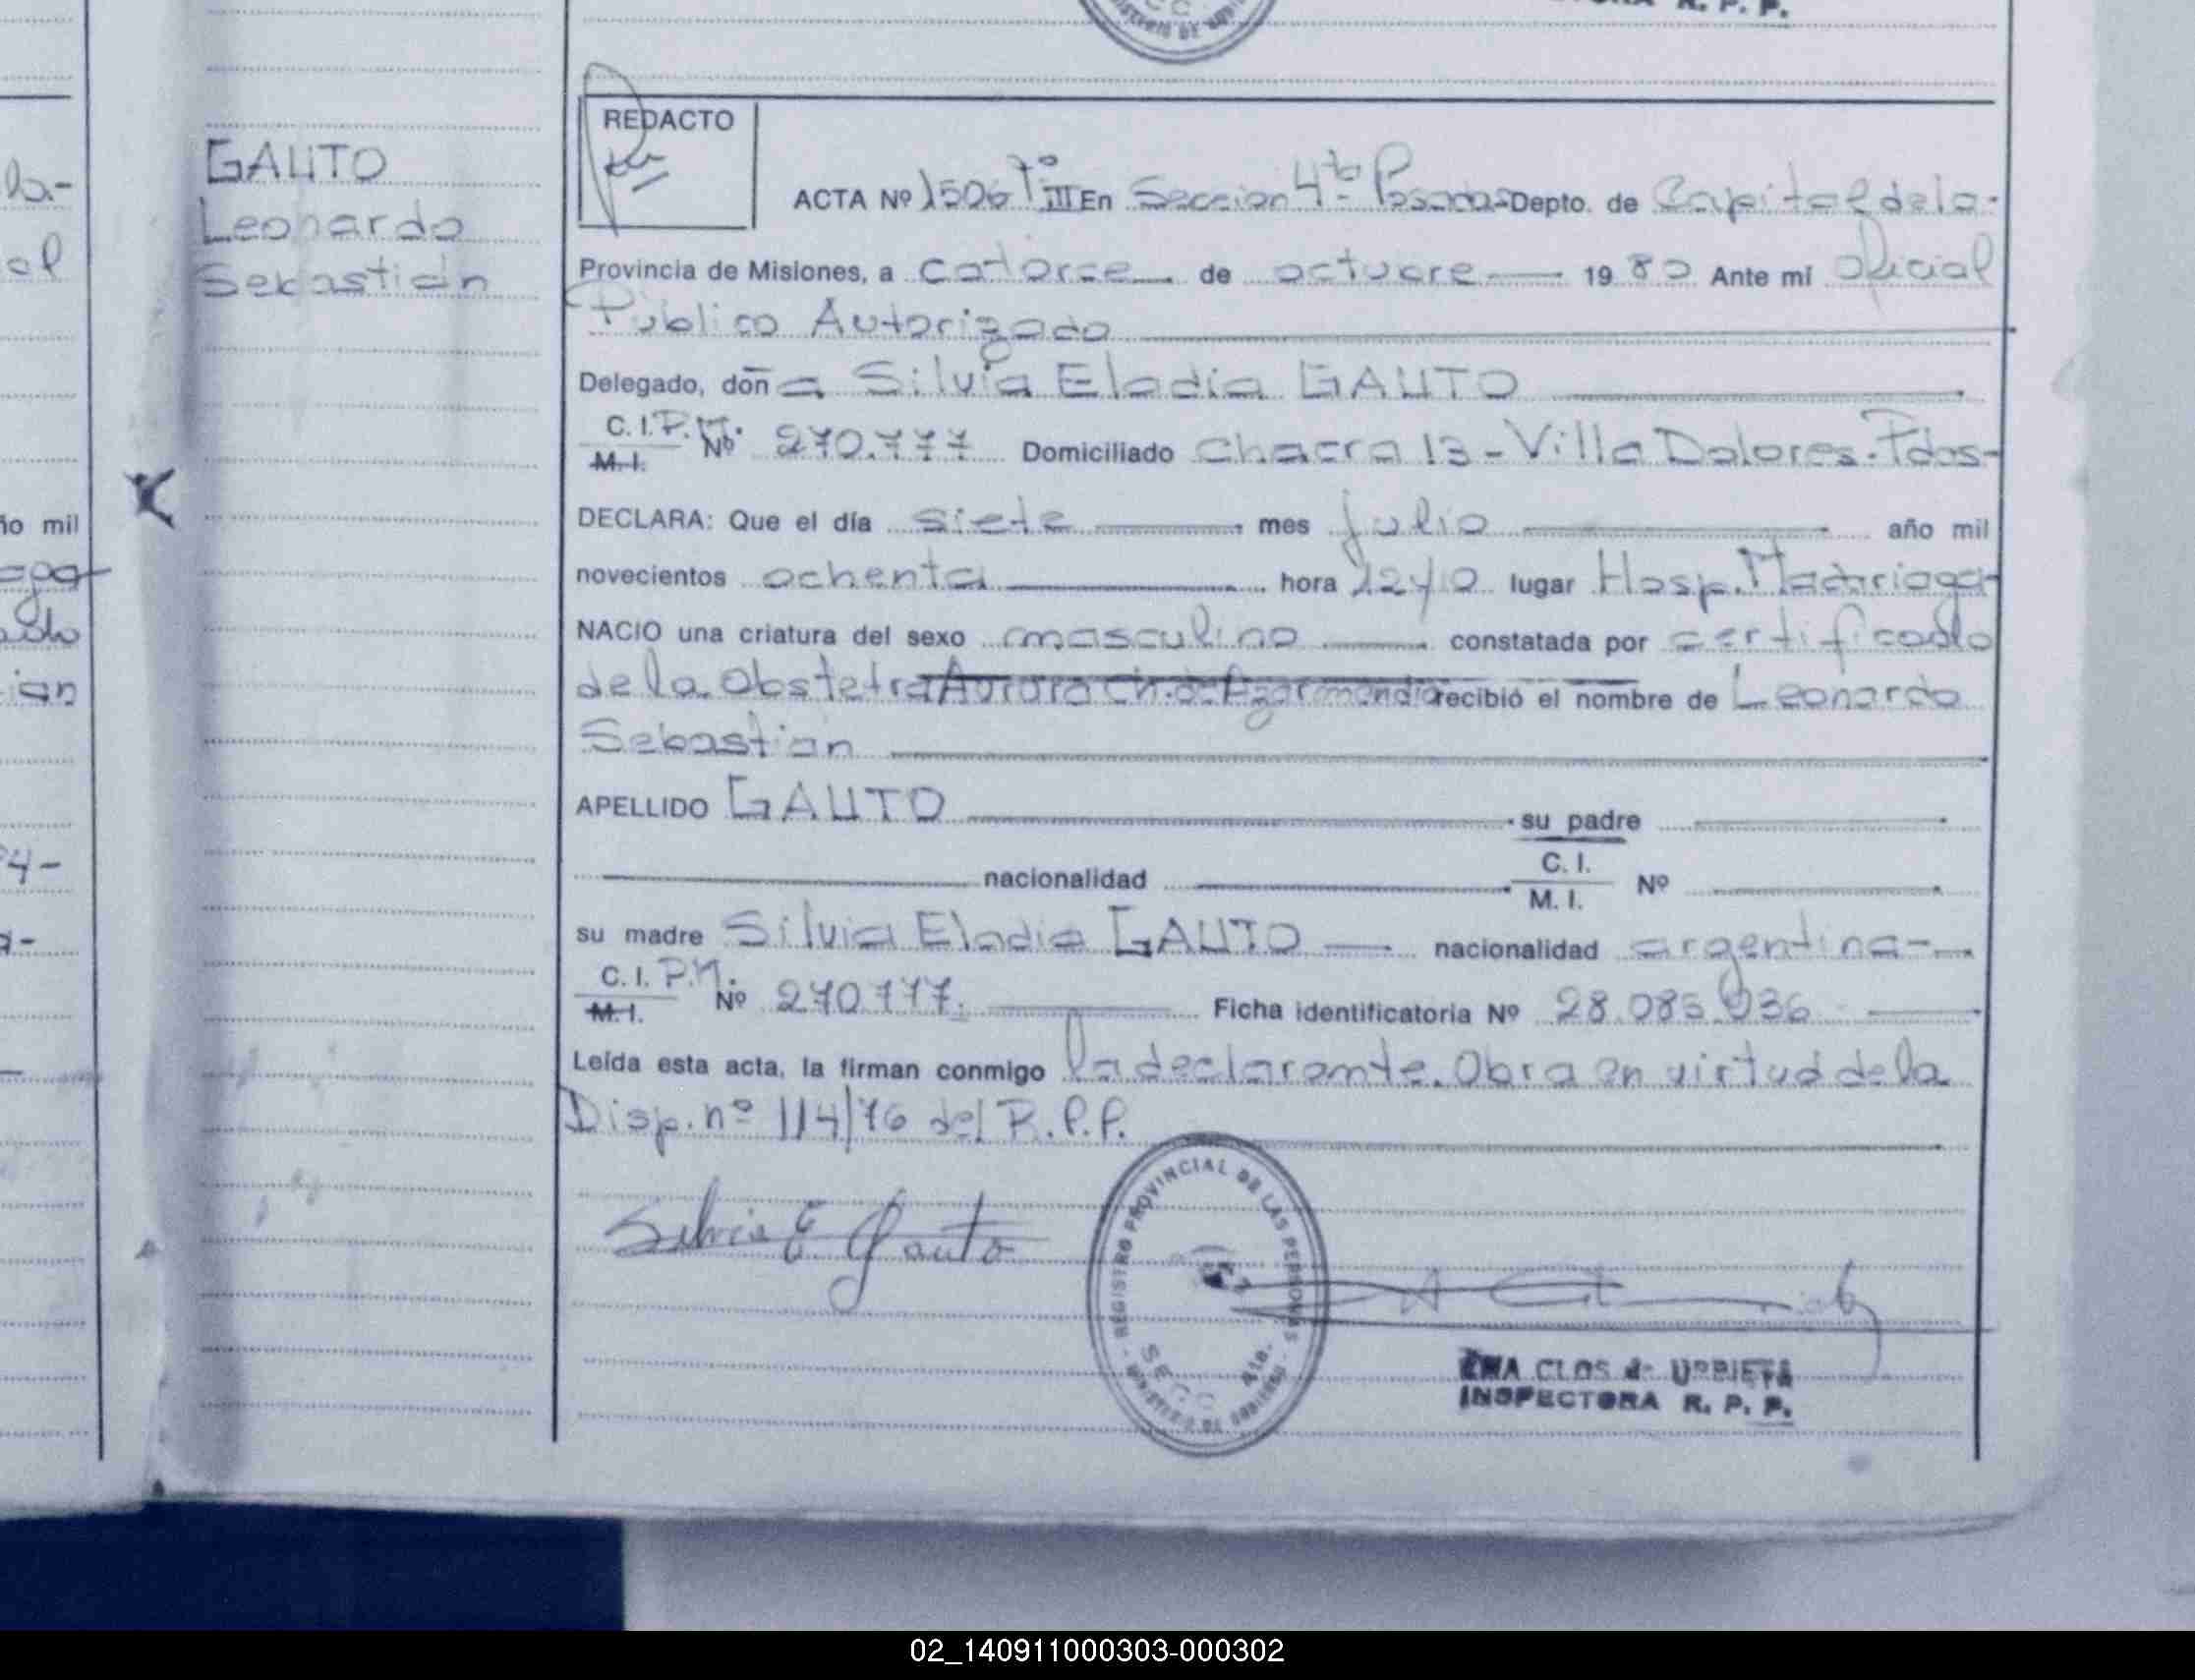 TORA R. P. P.
REDACTO
GAUTO
Leonardo
Sebastián
ACTA Nº 1506 Tº III En Seccion 4ta Posadas Depto. de Capital de la
Provincia de Misiones, a catorce de octubre 1980 Ante mi Oficial
Público Autorizado
Delegado, don a Silvia Eladia GAUTO
C. I. P.M.
M. I. Nº 270.777 Domiciliado Chacra 13 - Villa Dolores. Pdas-
DECLARA: Que el día siete mes julio año mil
novecientos ochenta hora 12y10 lugar Hosp. Madariaga
NACIO una criatura del sexo masculino constatada por certificado
de la Obstetra Aurora Ch. de Azarmendia recibió el nombre de Leonardo
Sebastian
APELLIDO GAUTO su padre
nacionalidad C. I. M. I. Nº
su madre Silvia Eladia GAUTO nacionalidad argentina-
C. I. P.M.
M. I. Nº 270.777. Ficha identificatoria Nº 28.085.036
Leída esta acta, la firman conmigo la declarante. Obra en virtud de la
Disp. nº 114/76 del R.P.P.
Silvia E Gauto
REGISTRO PROVINCIAL DE LAS PERSONAS
SECC. 4ta.
CLOS de URRIETA
INSPECTORA R. P. P.
ño mil
02_140911000303-000302